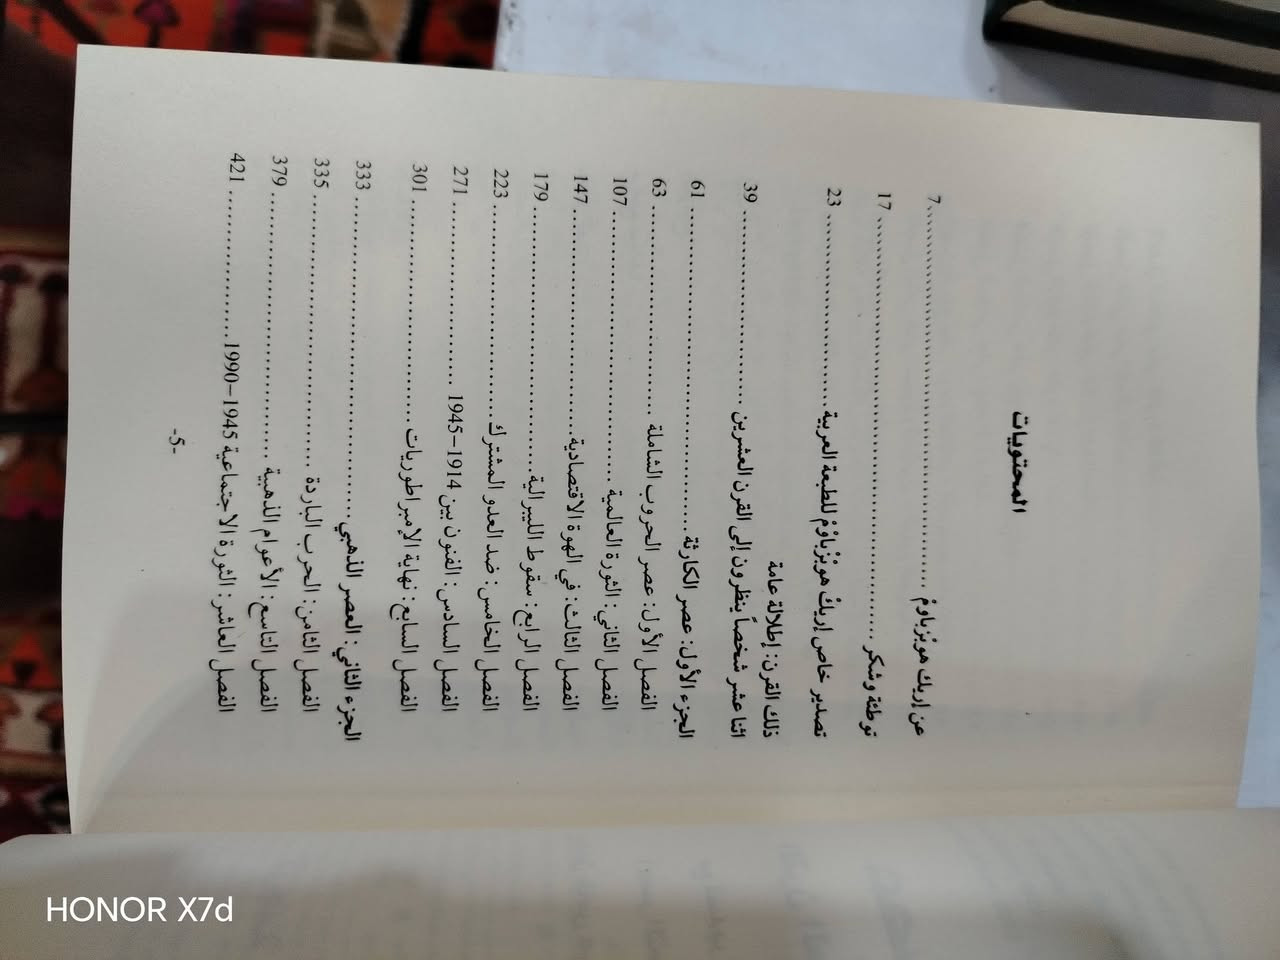 المحتويات
عن إريك هوبْزْباوْمْ ........................ 7
توطئة وشكر ........................ 17
تصدير خاص إريكْ هوبْزْباوْمْ للطبعة العربية ........................ 23
ذلك القرن: إطلالة عامة
اثنا عشر شخصاً ينظرون إلى القرن العشرين ........................ 39
الجزء الأول: عصر الكارثة ........................ 61
الفصل الأول: عصر الحروب الشاملة ........................ 63
الفصل الثاني: الثورة العالمية ........................ 107
الفصل الثالث: في الهوة الاقتصادية ........................ 147
الفصل الرابع: سقوط الليبرالية ........................ 179
الفصل الخامس: ضد العدو المشترك ........................ 223
الفصل السادس: الفنون بين 1914-1945 ........................ 271
الفصل السابع: نهاية الإمبراطوريات ........................ 301
الجزء الثاني: العصر الذهبي ........................ 333
الفصل الثامن: الحرب الباردة ........................ 335
الفصل التاسع: الأعوام الذهبية ........................ 379
الفصل العاشر: الثورة الاجتماعية 1945-1990 ........................ 421
-5-
HONOR X7d